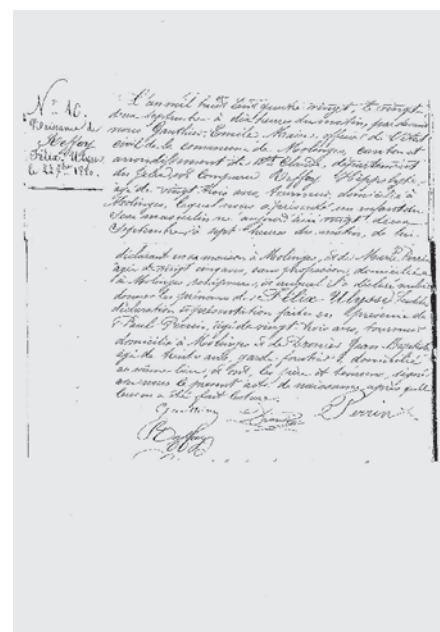 N° 10.
Naissance de
Deffoy
Félix Ulysse
le 22 7bre 1880.
L'an mil huit cent quatre vingt, le vingt
deux septembre à dix heures du matin, par devant
nous Gauthier Emile Maire, officier de l'état
civil de la commune de Molinges, canton et
arrondissement de St Claude, département
du Jura est comparu Deffoy Hippolyte,
âgé de vingt trois ans, tourneur, domicilié à
Molinges, lequel nous a présenté un enfant du
sexe masculin né aujourd'hui vingt deux
Septembre à sept heures du matin, de lui
déclarant en sa maison à Molinges, et de Marie Perrin
âgée de vingt cinq ans, sans profession, domiciliée
à Molinges, et auquel il a déclaré vouloir
donner les prénoms de Félix Ulysse
déclaration et présentation faites en présence de
Paul Perrin, âgé de vingt trois ans, tourneur
domicilié à Molinges et de Jean Baptiste
âgé de trente ans, garde forestier, domicilié
au même lieu, et ont, les père et témoins, signé
avec nous le présent acte de naissance après qu'il
leur en a été fait lecture.
Perrin